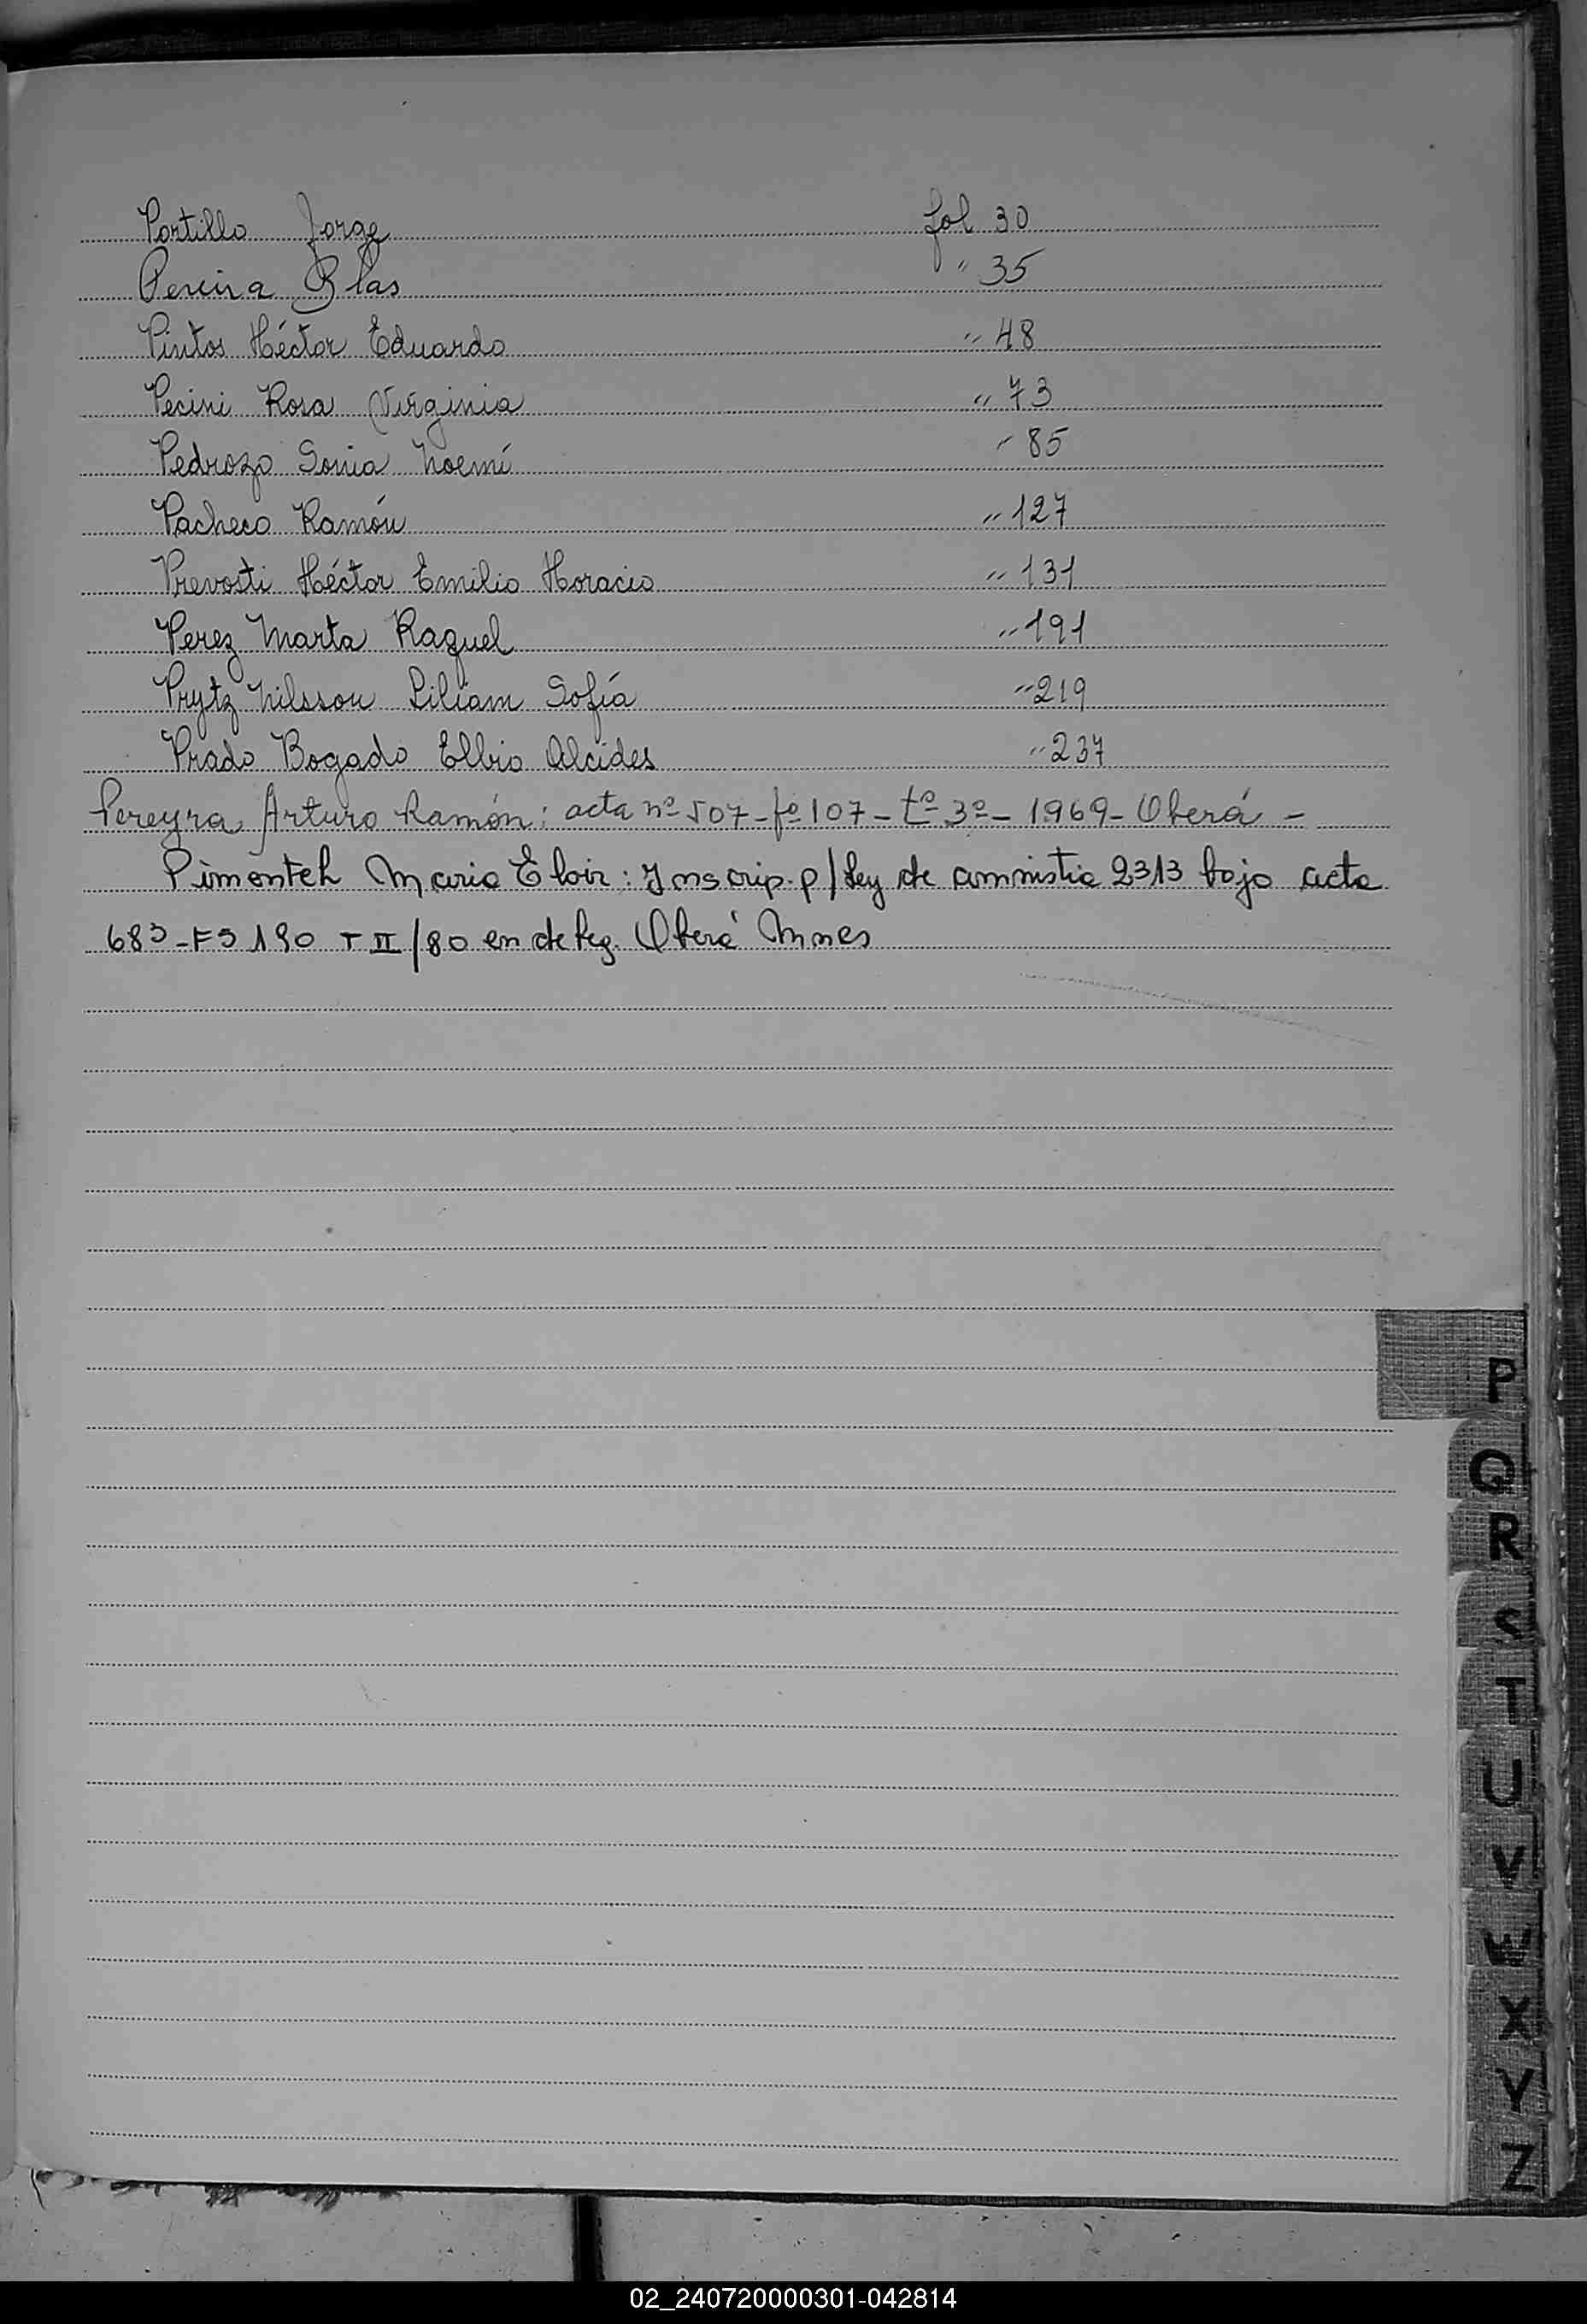 Portillo Jorge fol 30
Pereira Blas " 35
Pintos Héctor Eduardo " 48
Pecini Rosa Virginia " 73
Pedrozo Sonia Noemí " 85
Pacheco Ramón " 127
Prevosti Héctor Emilio Horacio " 131
Perez Marta Raquel " 191
Prytz Nilsson Liliam Sofía " 219
Prado Bogado Elbio Alcides " 237
Pereyra Arturo Ramón: acta nº 507 - fº 107 - tº 3º - 1969 - Oberá -
Pimentel Maria Eloir: Inscrip. p/ Ley de amnistia 2313 bajo acta
683 - Fº 190 T II/80 en deleg. Oberá Mnes
P
Q
R
S
T
U
V
W
X
Y
Z
02_240720000301-042814